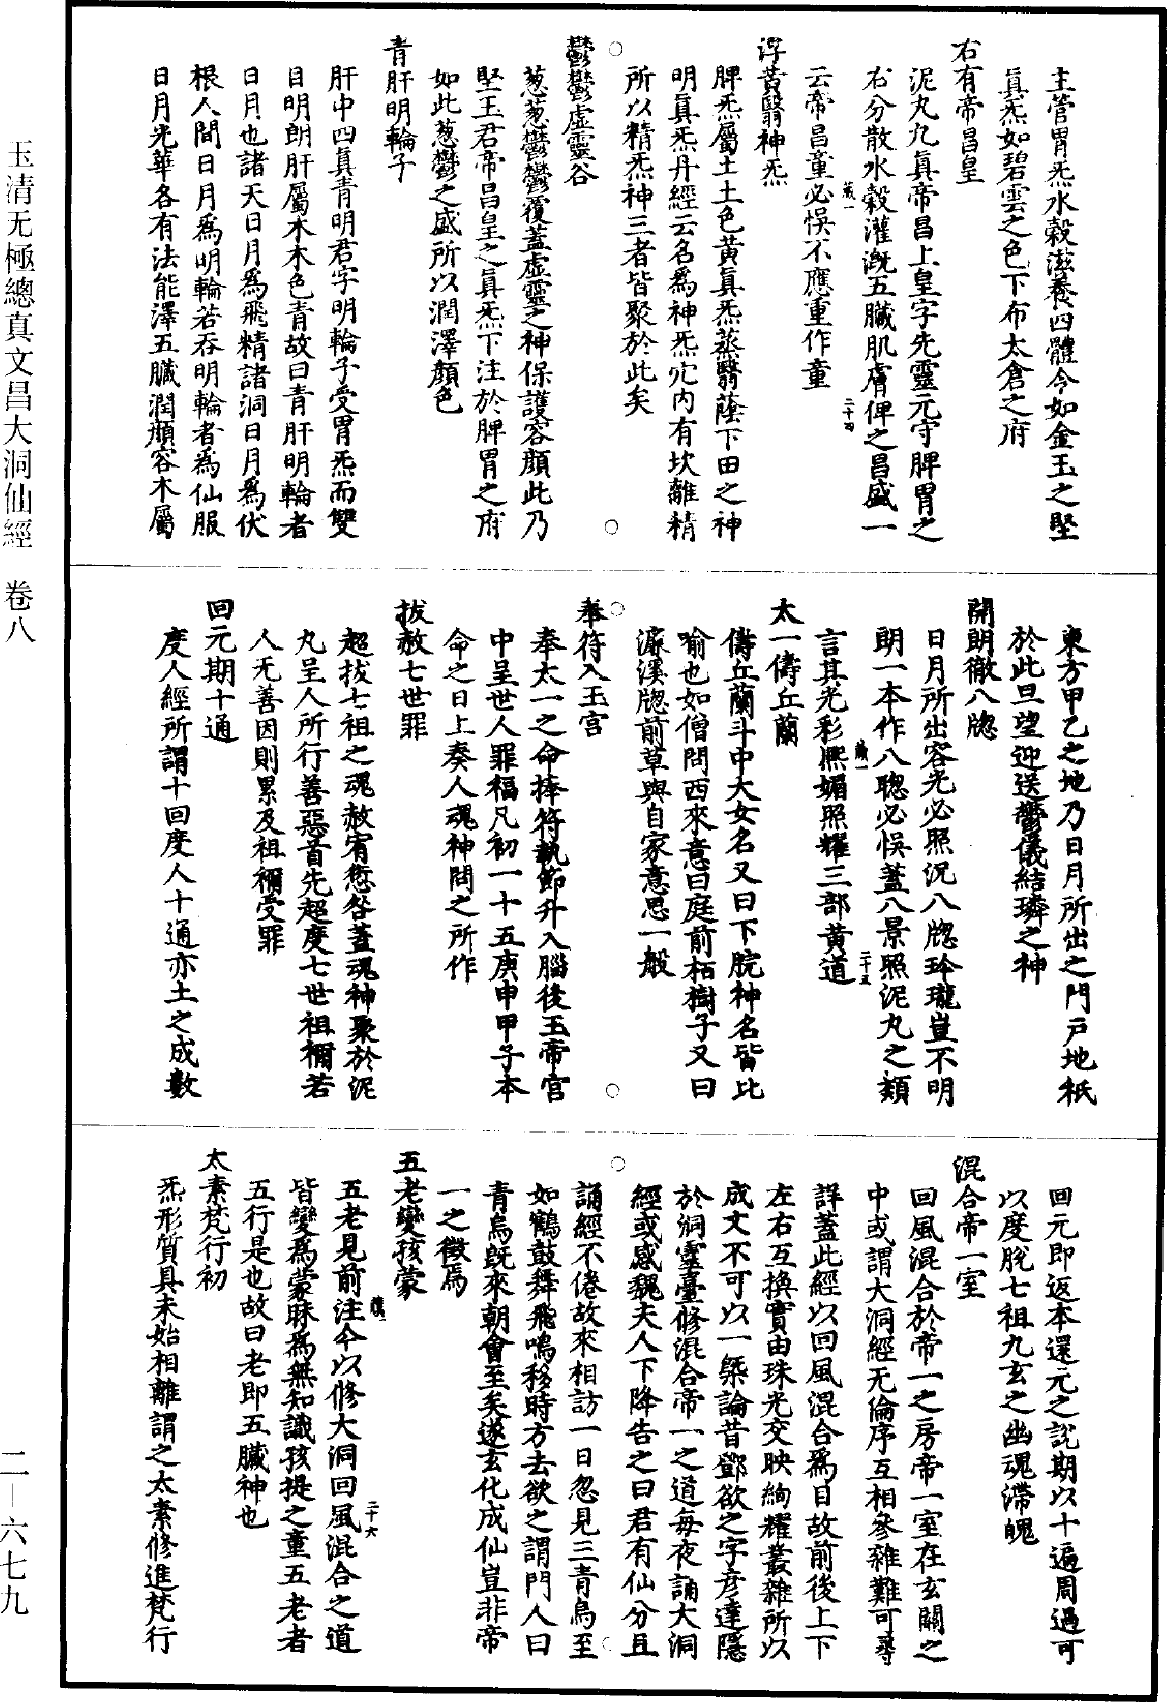 主管胃炁水穀滋養四體令如金玉之堅
真炁如碧雲之色下布太倉之府
右有帝昌皇
泥丸九真帝昌上皇字先靈元守脾胃之
右分散水穀灌溉五臟肌膚俾之昌盛一
云帝昌童必悞不應重作童
浮黃翳神炁
脾炁屬土土色黃真炁蒸翳蔭下田之神
明真炁丹經云名為神炁穴內有坎離精
所以精炁神三者皆聚於此矣
鬱鬱虛靈谷
蔥蔥鬱鬱覆蓋虛靈之神保護容顏此乃
堅玉君帝昌皇之真炁下注於脾胃之府
如此蔥鬱之盛所以潤澤顏色
青肝明輪子
肝中四真青明君字明輪子受胃炁而雙
目明朗肝屬木木色青故曰青肝明輪者
日月也諸天日月為飛精諸洞日月為伏
根人間日月為明輪若吞明輪者為仙服
日月光華各有法能澤五臟潤顏容木屬
二十四
東方甲乙之地乃日月所出之門戶地祇
於此旦望迎送鬱儀結璘之神
開朗徹八牕
日月所出容光必照況八牕玲瓏豈不明
朗一本作八聰必悞蓋八景照泥丸之類
言其光彩熈媚照耀三部黃道
太一儔丘蘭
儔丘蘭斗中大女名又曰下脘神名皆比
喻也如僧問西來意曰庭前栢樹子又曰
濂溪牕前草與自家意思一般
奉符入玉宮
奉太一之命捧符執節升入腦後玉帝宮
中呈世人罪福凡初一十五庚申甲子本
命之日上奏人魂神問之所作
拔赦七世罪
超拔七祖之魂赦宥愆咎蓋魂神聚於泥
丸呈人所行善惡首先超度七世祖禰若
人无善因則累及祖禰受罪
回元期十通
度人經所謂十回度人十通亦土之成數
二十五
回元即返本還元之說期以十遍周過可
以度脫七祖九玄之幽魂滯魄
混合帝一室
回風混合於帝一之房帝一室在玄關之
中或謂大洞經无倫序互相參雜難可尋
詳蓋此經以回風混合為目故前後上下
左右互換實由珠光交映絢耀叢雜所以
成文不可以一槩論昔鄧欲之字彥達隱
於洞靈臺修混合帝一之道每夜誦大洞
經或感魏夫人下降告之曰君有仙分且
誦經不倦故來相訪一日忽見三青鳥至
如鶴鼓舞飛鳴移時方去欲之謂門人曰
青鳥既來朝會至矣遂玄化成仙豈非帝
一之徵焉
五老變孩蒙
五老見前注今以修大洞回風混合之道
皆變為蒙昧為無知識孩提之童五老者
五行是也故曰老即五臟神也
太素梵行初
炁形質具未始相離謂之太素修進梵行
二十六
玉清无極總真文昌大洞仙經 卷八
二—六七九